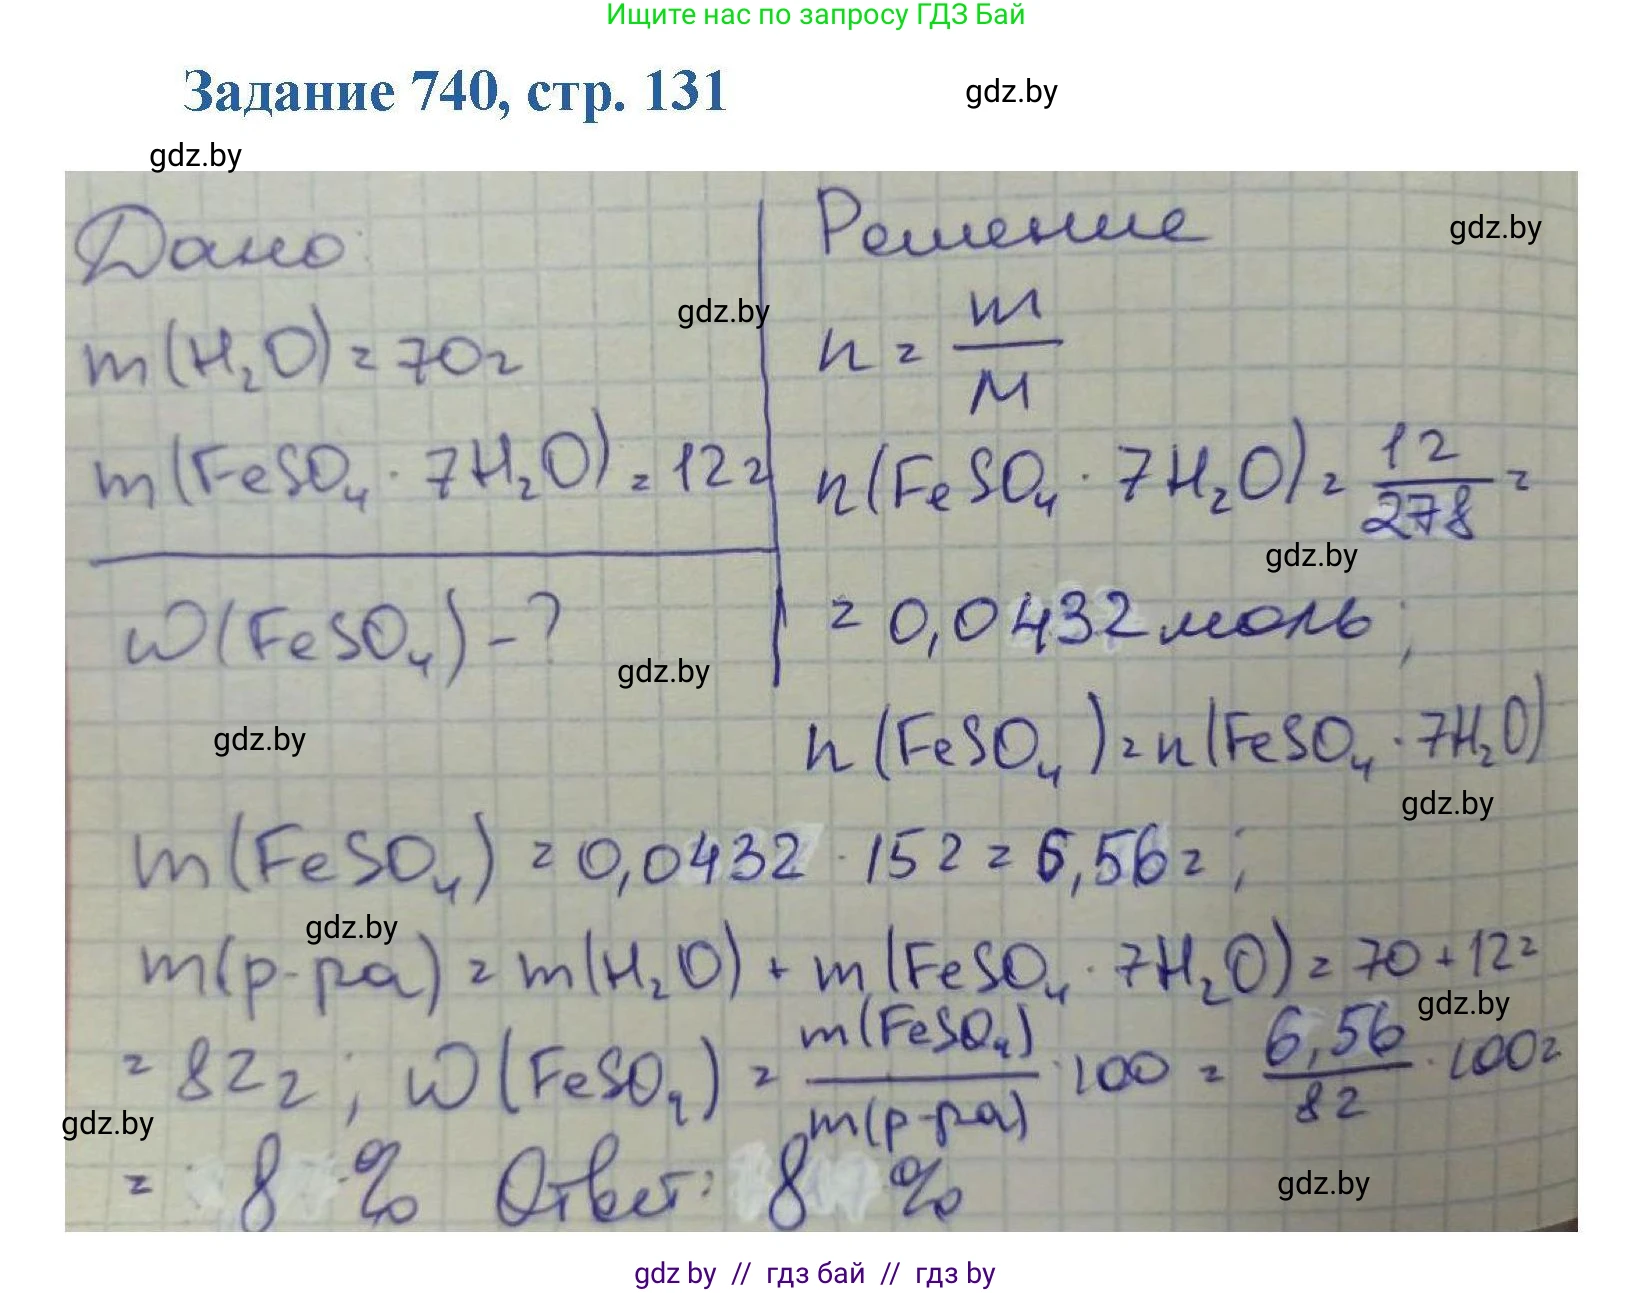 Ищите нас по запросу ГДЗ Бай
Задание 740, стр. 131
gdz.by
gdz.by
Дано:
m(H₂O) = 70г
m(FeSO₄ · 7H₂O) = 12г
w(FeSO₄) - ?
Решение
gdz.by
gdz.by
n = m/M
n(FeSO₄ · 7H₂O) = 12/278 =
gdz.by
= 0,0432 моль;
gdz.by
gdz.by
n(FeSO₄) = n(FeSO₄ · 7H₂O)
gdz.by
m(FeSO₄) = 0,0432 · 152 = 6,56г;
gdz.by
m(р-ра) = m(H₂O) + m(FeSO₄ · 7H₂O) = 70 + 12 =
gdz.by
= 82г; w(FeSO₄) = m(FeSO₄)/m(р-ра) · 100 = 6,56/82 · 100 =
gdz.by
= 8 % Ответ: 8 %
gdz.by
gdz by // гдз бай // гдз by